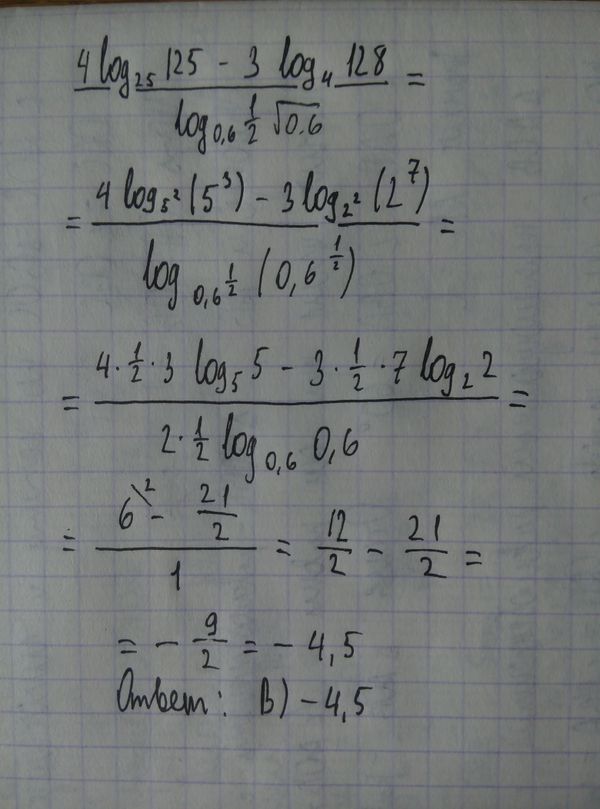 4 log₂₅ 125 - 3 log₄ 128 =
log₀,₆ 1/2 √0.6
= 4 log₅² (5³) - 3 log₂² (2⁷) =
log₀,₆^(1/2) (0,6^(1/2))
= 4 · 1/2 · 3 log₅ 5 - 3 · 1/2 · 7 log₂ 2 =
2 · 1/2 log₀,₆ 0,6
= 6\² - 21/2 = 12/2 - 21/2 =
1
= - 9/2 = - 4,5
Ответ: В) - 4,5